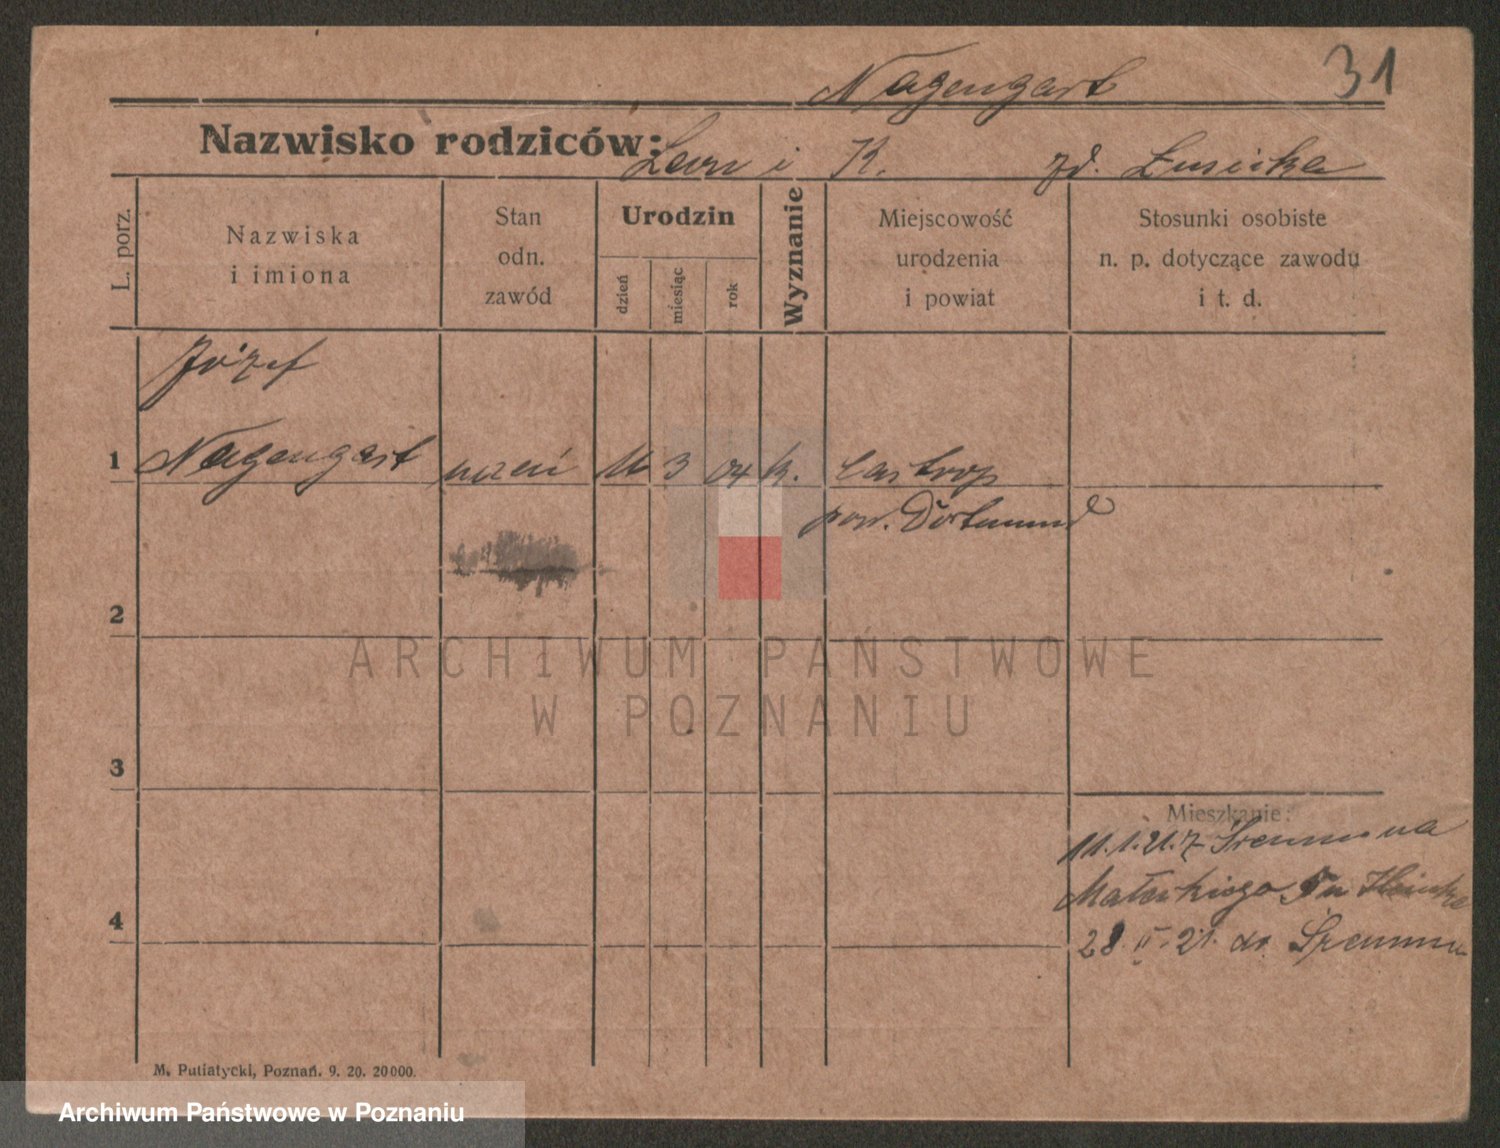 31
Nagengast
Nazwisko rodziców: Leon i K. zd. Łusicka
L. porz.
Nazwiska i imiona
Stan odn. zawód
Urodzin
dzień
miesiąc
rok
Wyznanie
Miejscowość urodzenia i powiat
Stosunki osobiste n. p. dotyczące zawodu i t. d.
Józef
1 Nagengast uczeń 3 04 k. Castrop
pow. Dortmund
2
ARCHIWUM PAŃSTWOWE
W POZNANIU
3
Mieszkanie:
11.1.21. z Śremu na
4
28. 21. do Śremu
M. Putiatycki, Poznań. 9. 20. 20000.
Archiwum Państwowe w Poznaniu